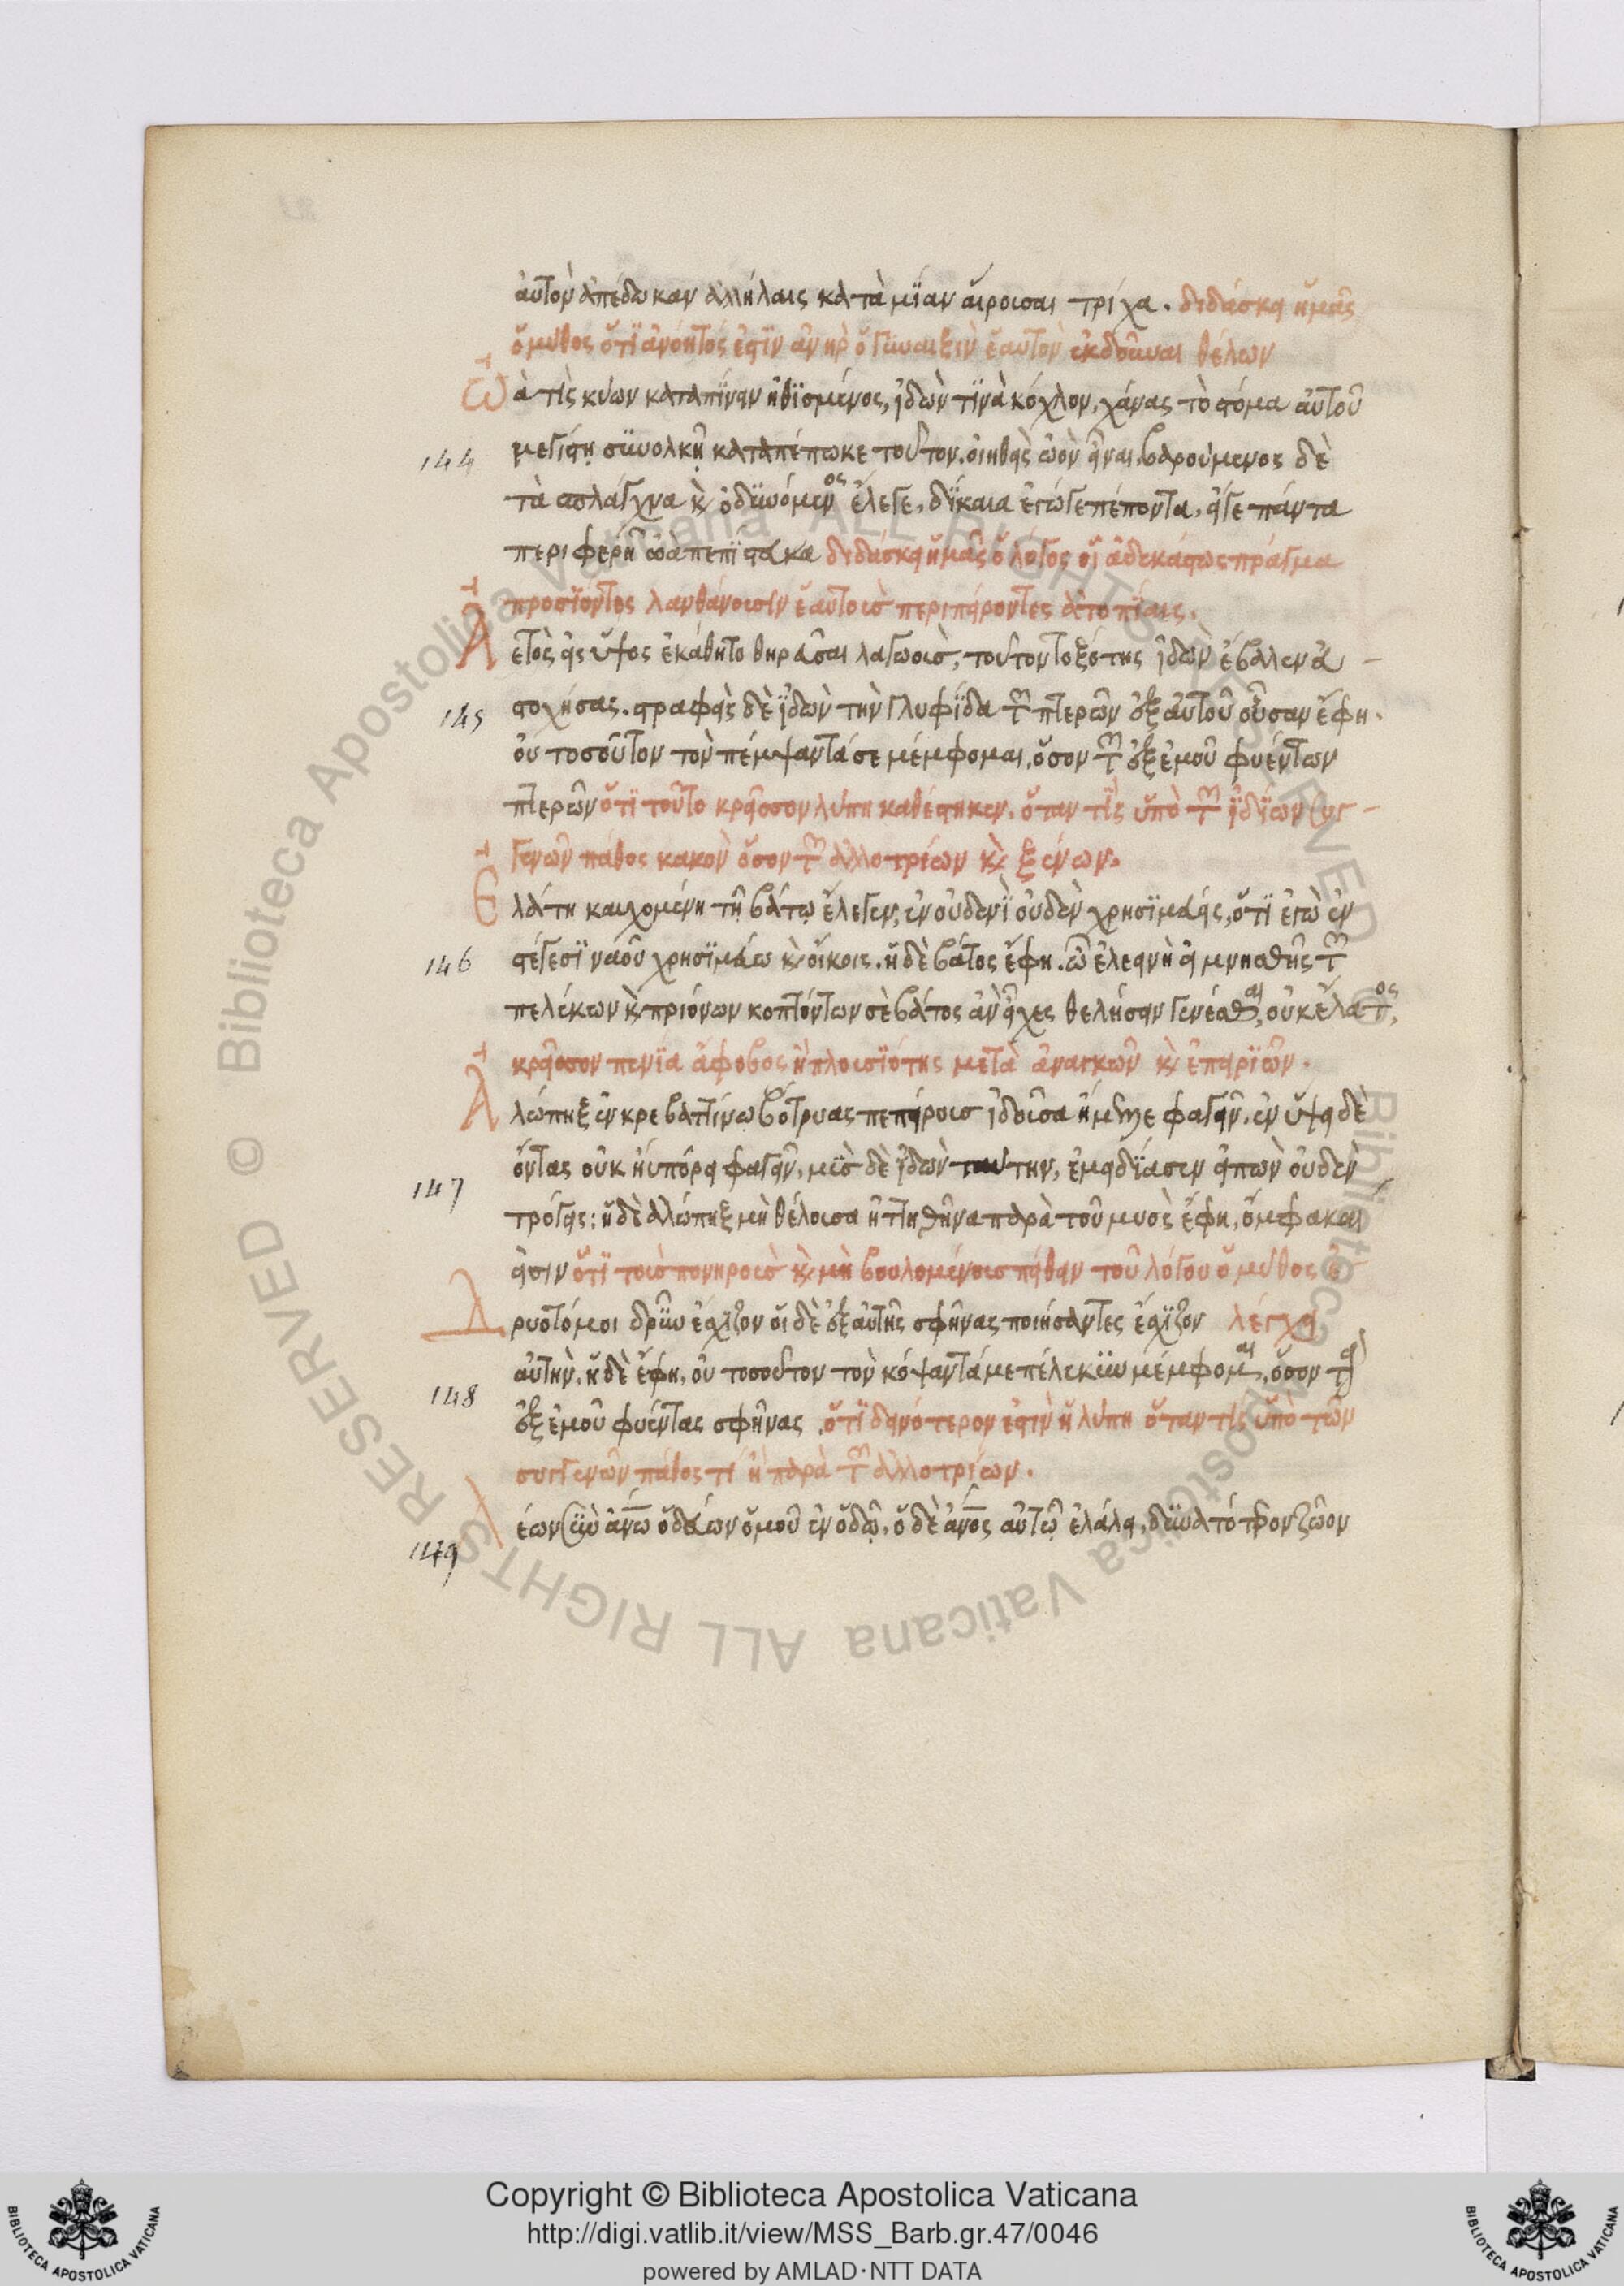 αὐτὸν ἀπέδωκαν ἀλλήλαις κατὰ μΐαν αἴρουσαι τρίχα. διδάσκει ἡμᾶς
ὁ μῦθος ὅτϊ ἀνόητός ἐστϊν ἀνὴρ ὁ γϋναιξὶν ἑαὐτὸν ἐκδοῦναι θέλων
Ὠὰ τίς κύων καταπΐνειν ἠθϊσμένος, ἰδὼν τϊνὰ κόχλον, χάνας τὸ στόμα αὐτοῦ
144 μεγίστῃ σϋνολκῇ καταπέπωκε τοῦτον. οἰηθεὶς ὠὸν εἶναι. βαρούμενος δὲ
τὰ σπλάγχνα κ ὀδϋνόμενος ἔλεγε, δΐκαια ἐγώγε πέπονθα, εἴγε πάντα
περιφερῆ ὠὰ πεπΐστακα διδάσκει ἡμᾶς ὁ λόγος οἱ ἀδεκάστως πράγμα
προσϊόντες λανθάνουσϊν ἑαὐτοὺσ περιπείροντες ἀτοπΐαις.
Ἀετὸς εἰς ὕψος ἐκάθητο θηρᾶσαι λαγωοὺσ, τοῦτον τοξότης ἰδὼν ἔβαλεν ἀ
145 στοχήσας. στραφεὶς δὲ ἰδὼν τὴν γλυφΐδα τῶν πτερῶν ἐξ αὐτοῦ οὖσαν ἔφη.
οὐ τοσοῦτον τὸν πέμψαντά σε μέμφομαι, ὅσον τῶν ἐξ ἐμοῦ φυέντων
πτερῶν ὅτϊ τοῦτο κρεῖσσον λύπη καθέστηκεν. ὅταν τὶς ὑπὸ τῶν ἰδΐων συγ
γενῶν πάθος κακὸν ὅσον τῶν ἀλλοτρίων κ ξένων.
Ἐλάτη καυχομένη τῇ βάτῳ ἔλεγεν, ἐν οὐδενῒ οὐδὲν χρησϊμεύεις, ὅτϊ ἐγὼ ἐν
146 στέγεσϊ ναοῦ χρησϊμεύω κ οἴκοις. ἡ δὲ βάτος ἔφη. ὦ ἐλεεινὴ εἰ μνησθῇς τῶν
πελέκων κ πριόνων κοπτόντων σὲ βάτος ἂν εἶχες θελήσειν γενέσθαι, οὐκ ἔλατος,
κρεῖσσον πενΐα ἄφοβος ἢ πλουσϊότης μετὰ ἀναγκῶν κ ἐπηρϊῶν.
Ἀλώπηξ ἐν κρεβαττίνῳ βότρυας πεπείρους ἰδοῦσα ἤμελλε φαγεῖν. ἐν ὕψει δὲ
147 ὄντας οὐκ ηὐπόρει φαγεῖν, μῦσ δὲ ἰδὼν ταύτην, ἐμειδΐασεν εἰπὼν οὐδὲν
τρόγεις: ἡ δὲ ἀλώπηξ μὴ θέλουσα ἡττηθῆνα παρὰ τοῦ μυὸς ἔφη, ὄμφακαι
εἰσιν ὅτϊ τοὺσ πονηροὺσ κ μὴ βουλομένους πείθειν τοῦ λόγου ὁ μῦθος ἐ
Δρυοτόμοι δρῦν ἔσχιζον οἱ δὲ ἐξ αὐτῆς σφῆνας ποιήσαντες ἔσχϊζον λέγχει
αὐτὴν. ἡ δὲ ἔφη, οὐ τοσοῦτον τὸν κόψαντά με πέλεκϋν μέμφομαι, ὅσον τοὺς
148 ἐξ ἐμοῦ φυέντας σφῆνας. ὅτϊ δεινότερον ἐστιν ἡ λύπη ὅταν τίς ὑπὸ τῶν
συγγενῶν πάθος τί ἢ παρὰ τῶν ἀλλοτρίων.
149 Λέων σὺν ἀνω ὁδεύων ὁμοῦ ἐν ὁδῷ, ὁ δὲ ἀνος αὐτῷ ἐλάλει, δϋνατότρον ζῶον
Copyright © Biblioteca Apostolica Vaticana
http://digi.vatlib.it/view/MSS_Barb.gr.47/0046
powered by AMLAD·NTT DATA
BIBLIOTECA APOSTOLICA VATICANA
BIBLIOTECA APOSTOLICA VATICANA
© Biblioteca Apostolica Vaticana ALL RIGHTS RESERVED
© Biblioteca Apostolica Vaticana ALL RIGHTS RESERVED